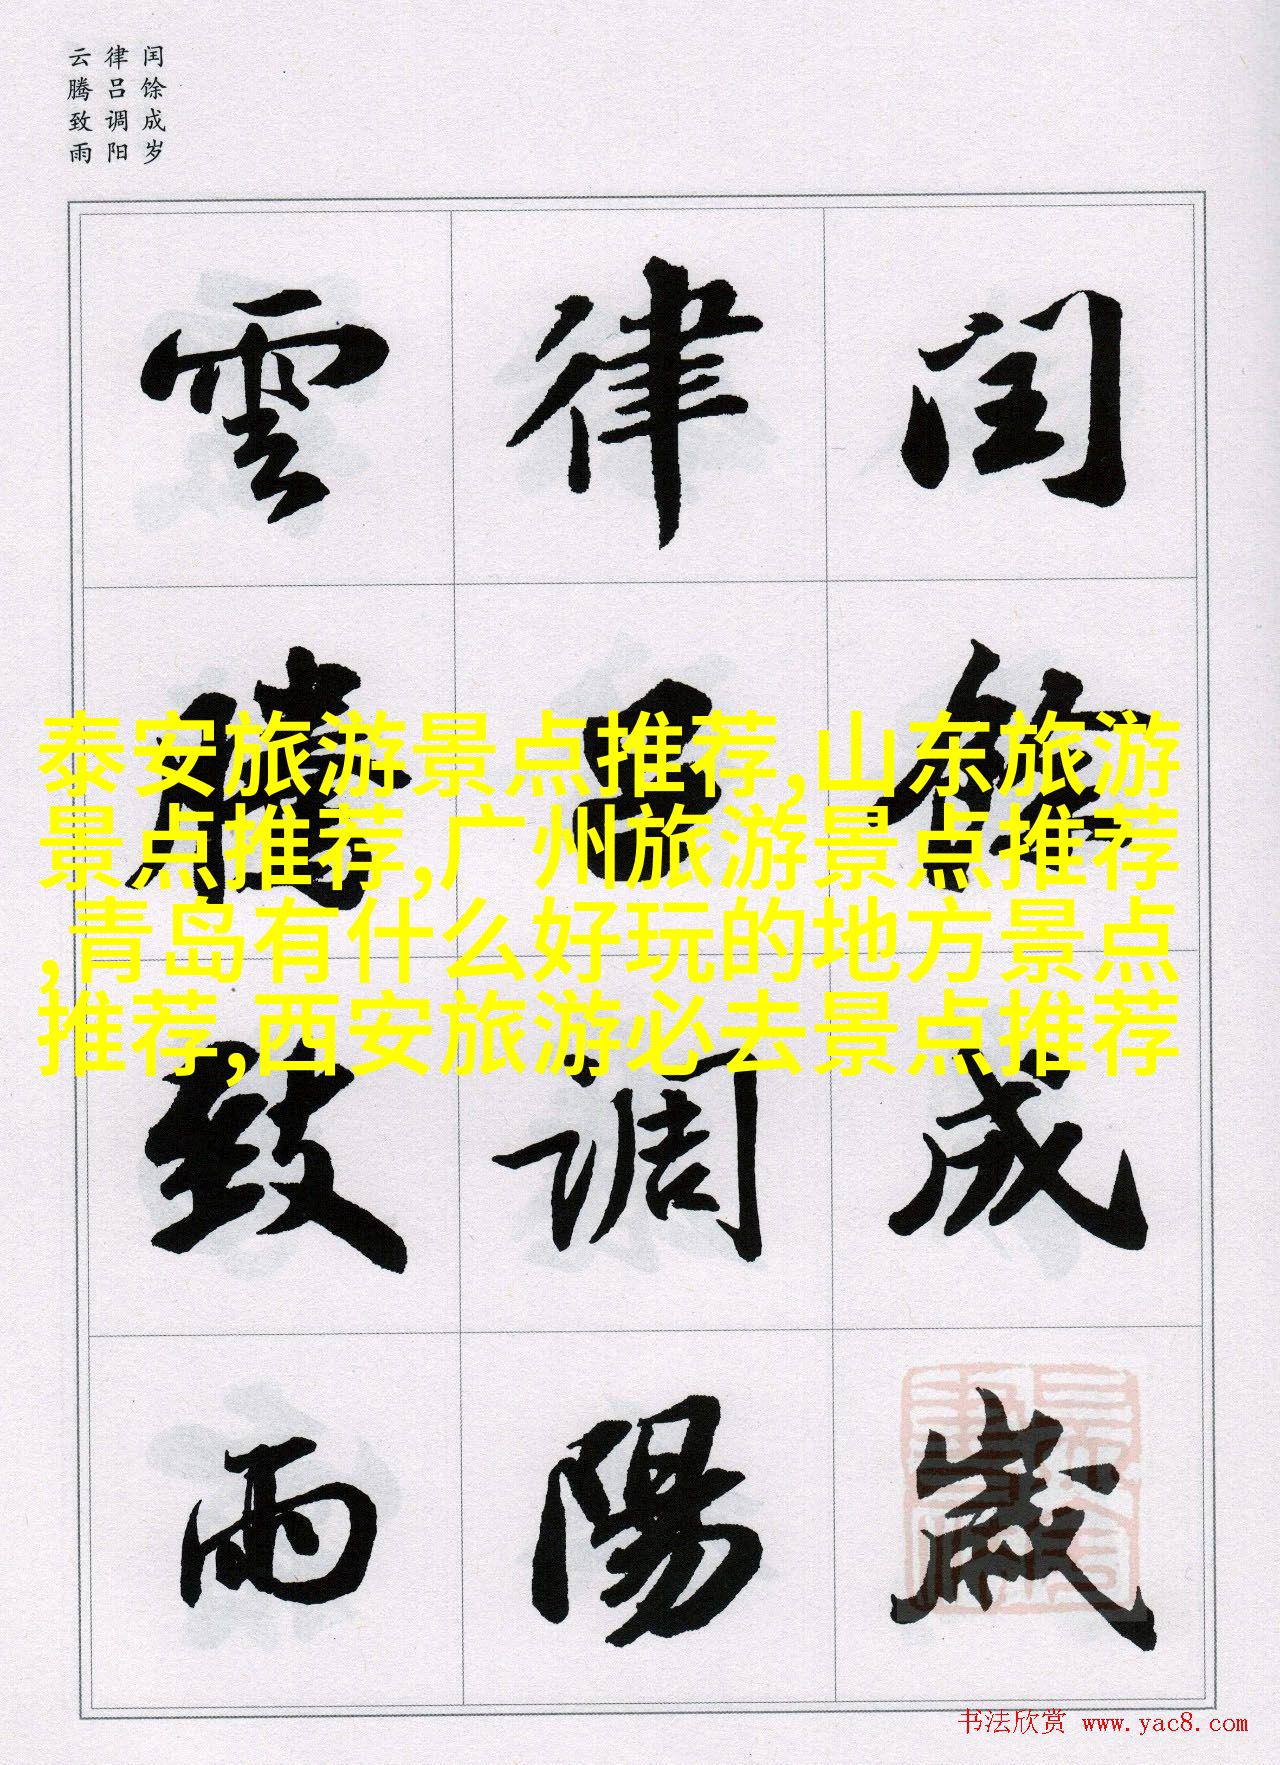 闰馀成岁
律吕调阳
云腾致雨
閏
餘
成
歲
律
吕
調
陽
雲
騰
致
雨
泰安旅游景点推荐,山东旅游
景点推荐,广州旅游景点推荐
,青岛有什么好玩的地方景点
推荐,西安旅游必去景点推荐
书法欣赏 www.yac8.com